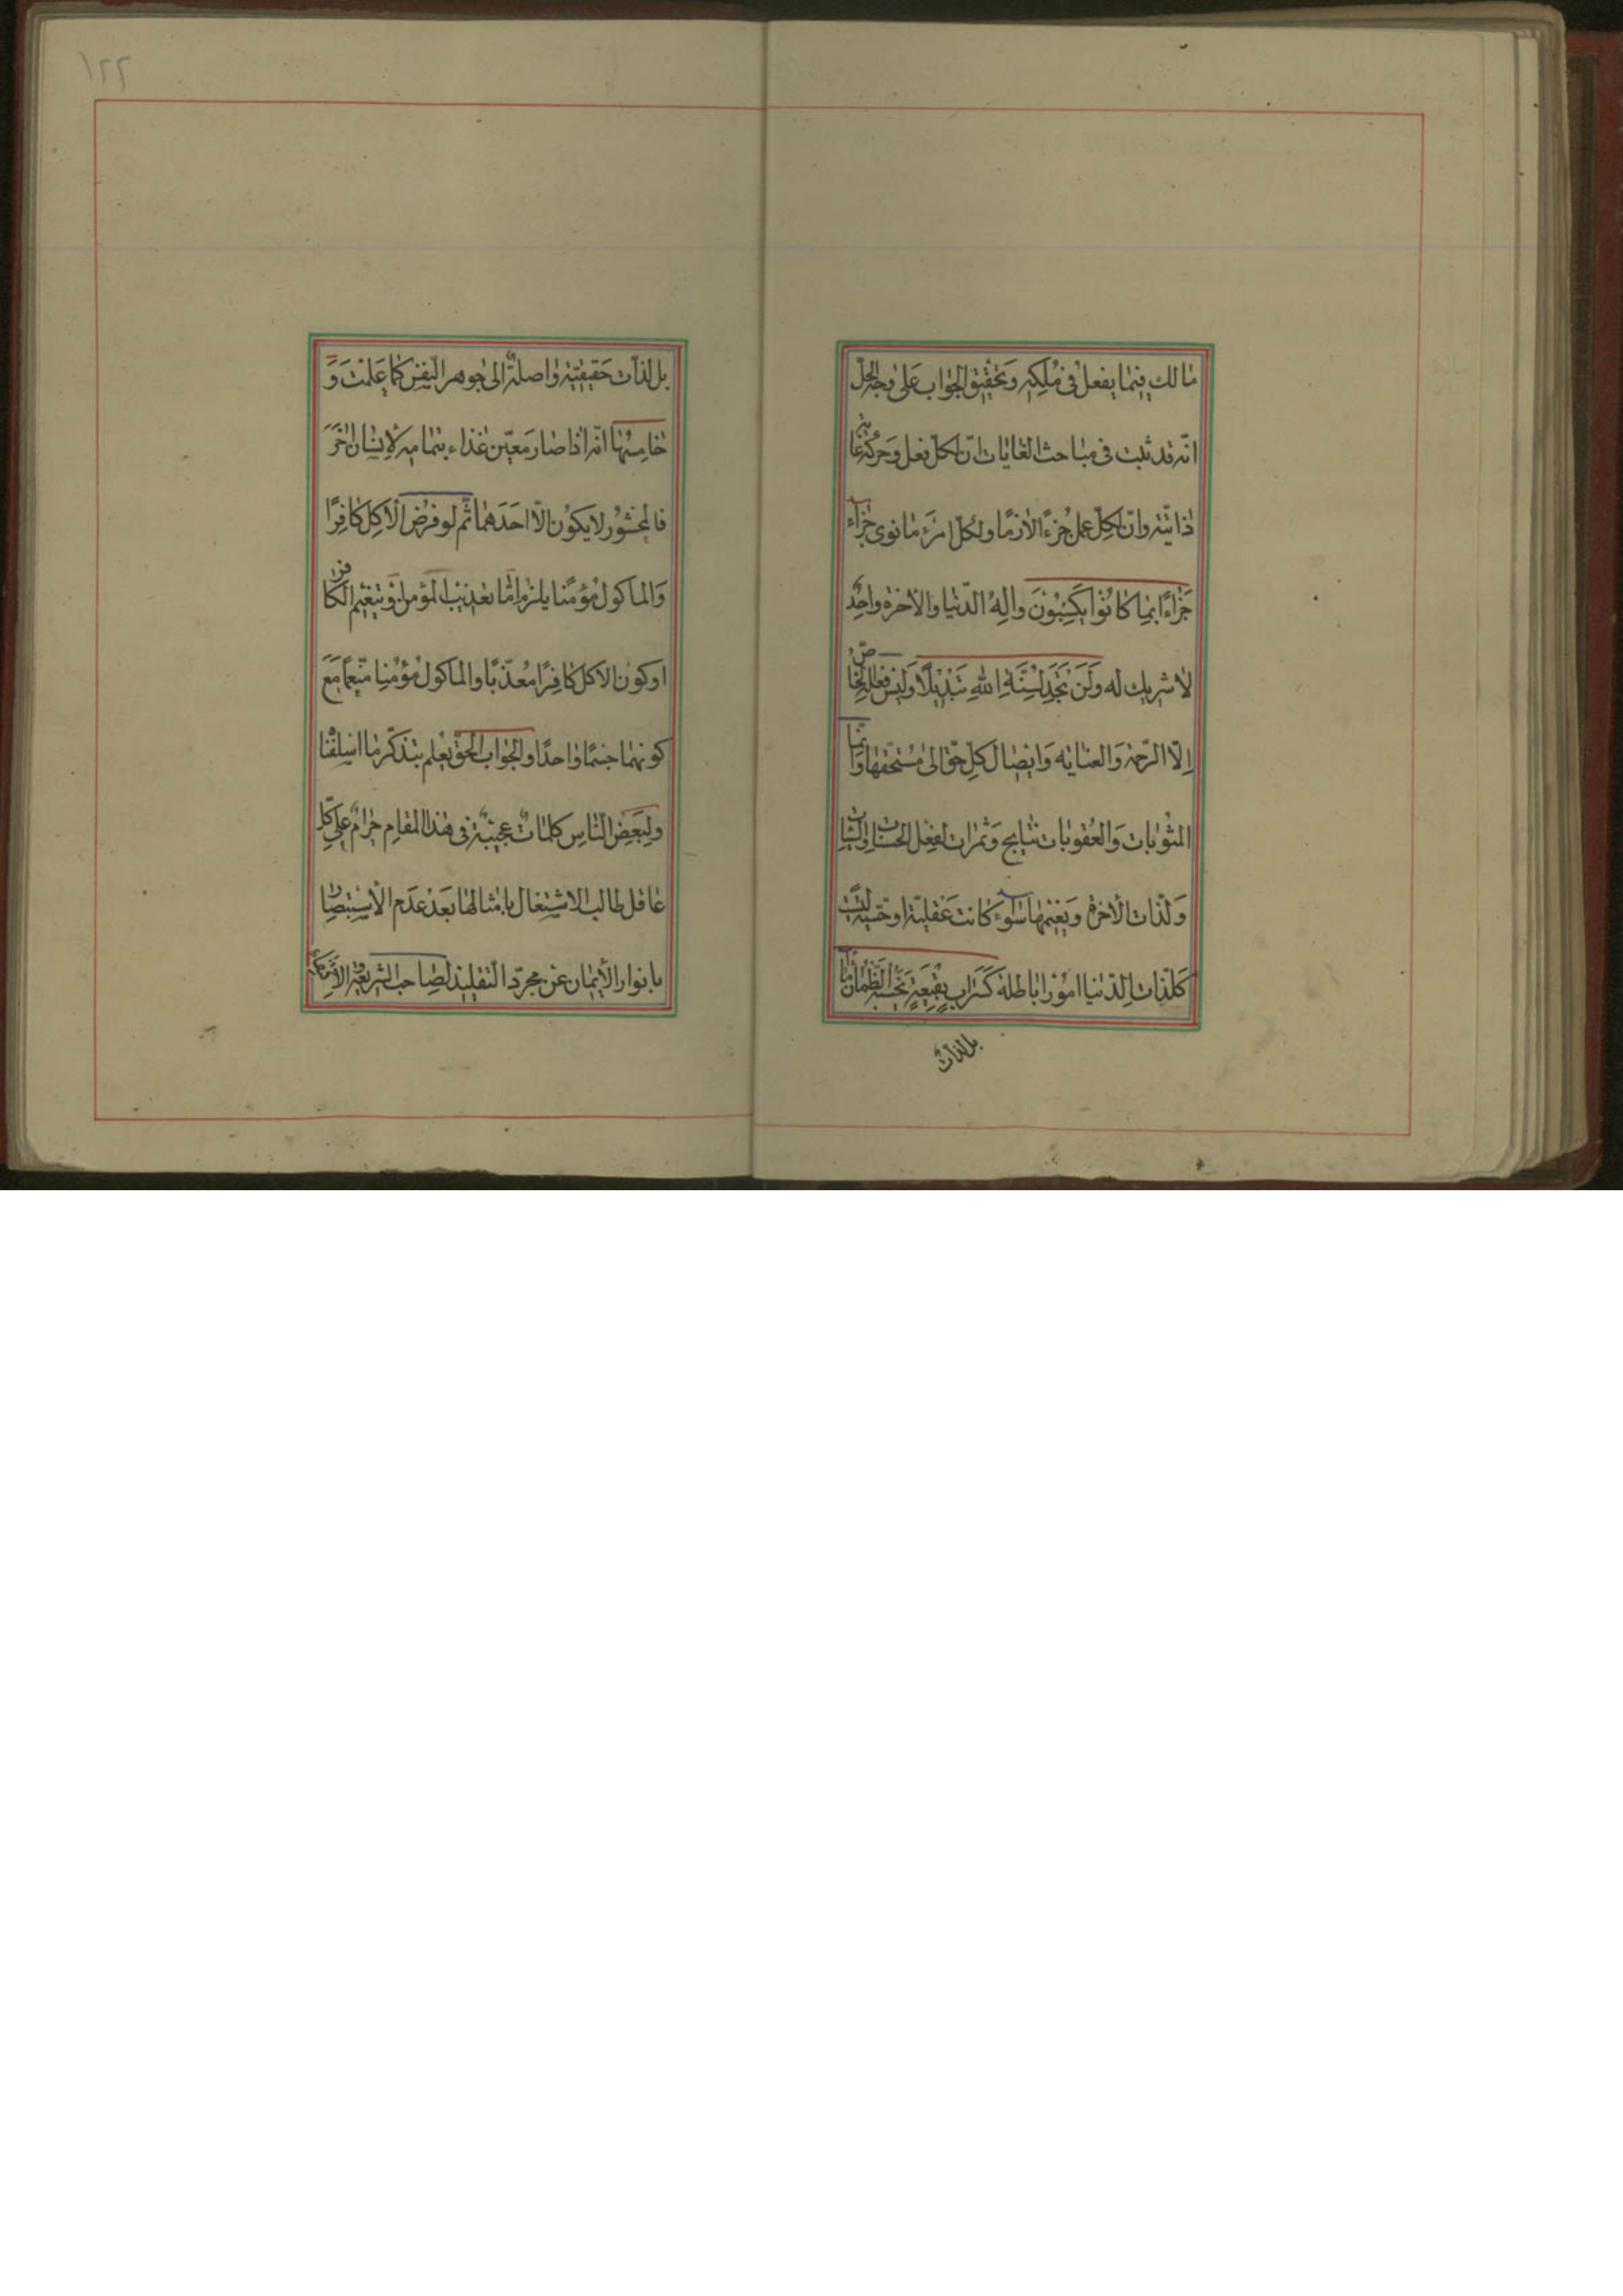 مالك فيما يفعل فى ملكه وتحقيق الجواب على وجه الحلّ
انّه قد ثبت فى مباحث الغايات انّ لكلّ فعل وحركة غاية
ذاتيّة وانّ لكلّ عمل جزءًا لازمًا ولكلّ امرء ما نوى جزاء
جَزَاءً بِمَا كَانُوا يَكْسِبُونَ واله الدّنيا والاخرة واحدٌ
لا شريك له وَلَنْ تَجِدَ لِسُنَّةِ اللهِ تَبْدِيلًا وليس فعله الخاصّ
إلّا الرّحمة والعناية وايصال كلّ حقّ الى مستحقّها وانّما
المثوبات والعقوبات نتايج وثمرات لفعل الحسنات والسّيّئات
ولذّات الاخرة ونعيمها سواء كانت عقليّة او حسّيّة ليست
كلذّات الدّنيا امورًا باطلة كَسَرَابٍ بِقِيعَةٍ يَحْسَبُهُ الظَّمْآنُ مَاءً
بل لذّات
١٢٢
بل لذّات حقيقيّة واصلة الى جوهر النّفس كما علمت وَ
خامسها انّه اذا صار معيّن غذاء بتمامه لإنسان اخر
فالمحشور لا يكون الّا احدهما ثمّ لو فرض الاكل كافرًا
والماكول مؤمنا يلزم امّا تعذيب المؤمن او تنعيم الكافر
او كون الاكل كافرًا معذّبًا والماكول مؤمنا منعّمًا مع
كونهما جسمًا واحدًا والجواب الحقّ يعلم بتذكّر ما اسلفنا
ولبعض النّاس كلمات عجيبة فى هذا المقام حرام على كلّ
عاقل طالب الاشتغال بامثالها بعد عدم الاستبصار
بانوار الأيمان عن مجرّد التّقليد لصاحب الشريعة